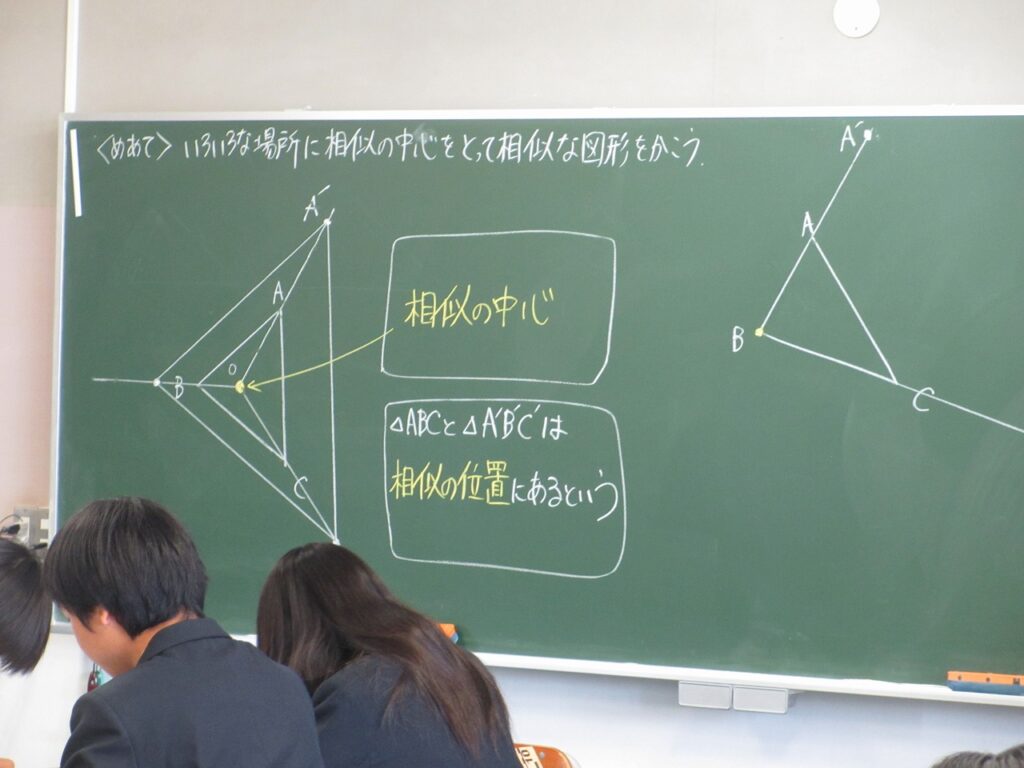 <めあて> いろいろな場所に相似の中心をとって相似な図形をかこう.
A´
A
B
O
C
相似の中心
△ABCと△A´B´C´は
相似の位置にあるという
A´
A
B
C